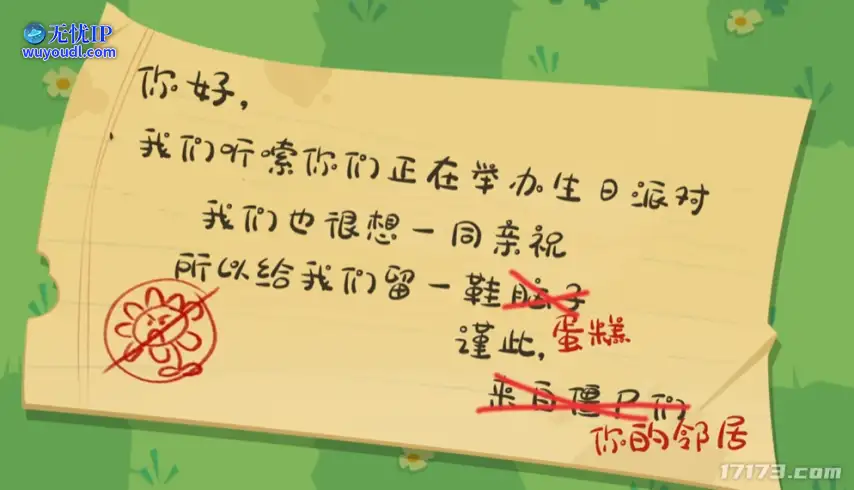 无忧IP
wuyoudl.com
你好，
我们听嗦你们正在举办生日派对
我们也很想一同亲祝
所以给我们留一鞋脑子
谨此，蛋糕
来自僵尸们
你的邻居
17173.com